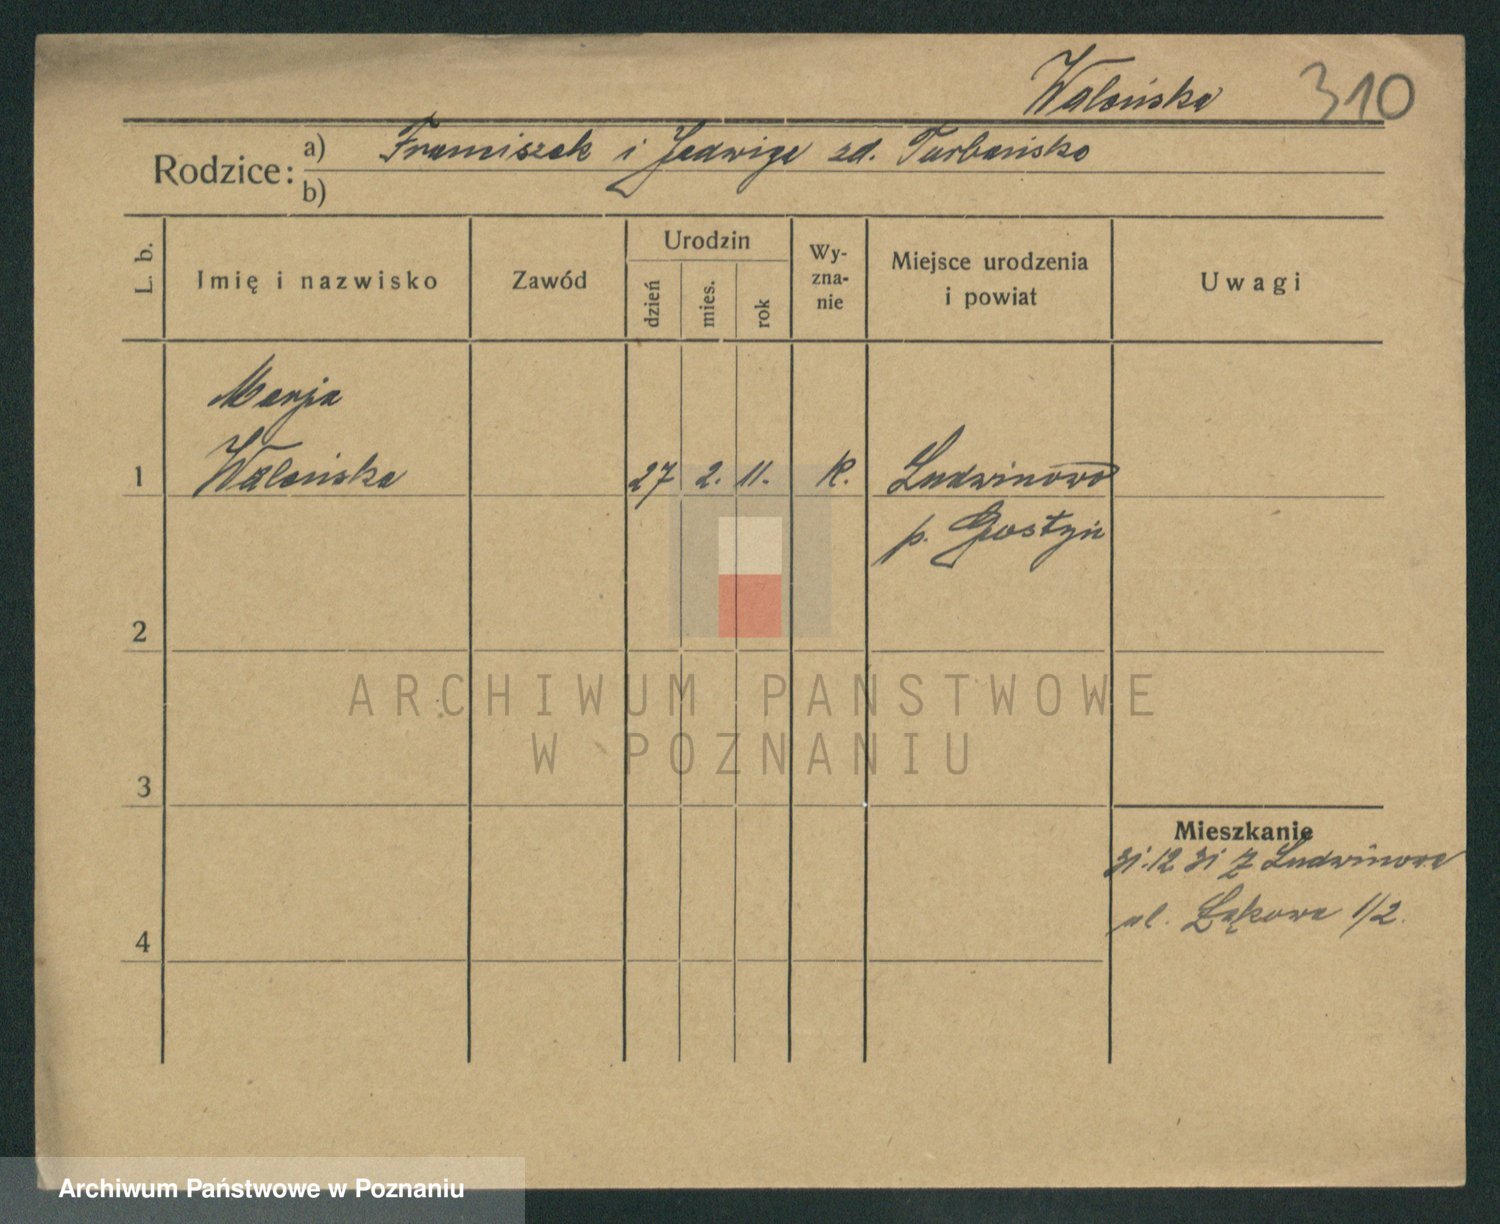 Waleńska 310
Rodzice: a) Franciszek i Jadwiga zd. Turbańska
b)
L. b. Imię i nazwisko Zawód Urodzin dzień mies. rok Wy-zna-nie Miejsce urodzenia i powiat Uwagi
Marja
1 Waleńska 27 2. 11. R. Ludwinowo
p. Gostyń
2
ARCHIWUM PAŃSTWOWE
W POZNANIU
3
Mieszkanie
31.12 31 z Ludwinowa
ul. Łąkowa 1/2.
4
Archiwum Państwowe w Poznaniu